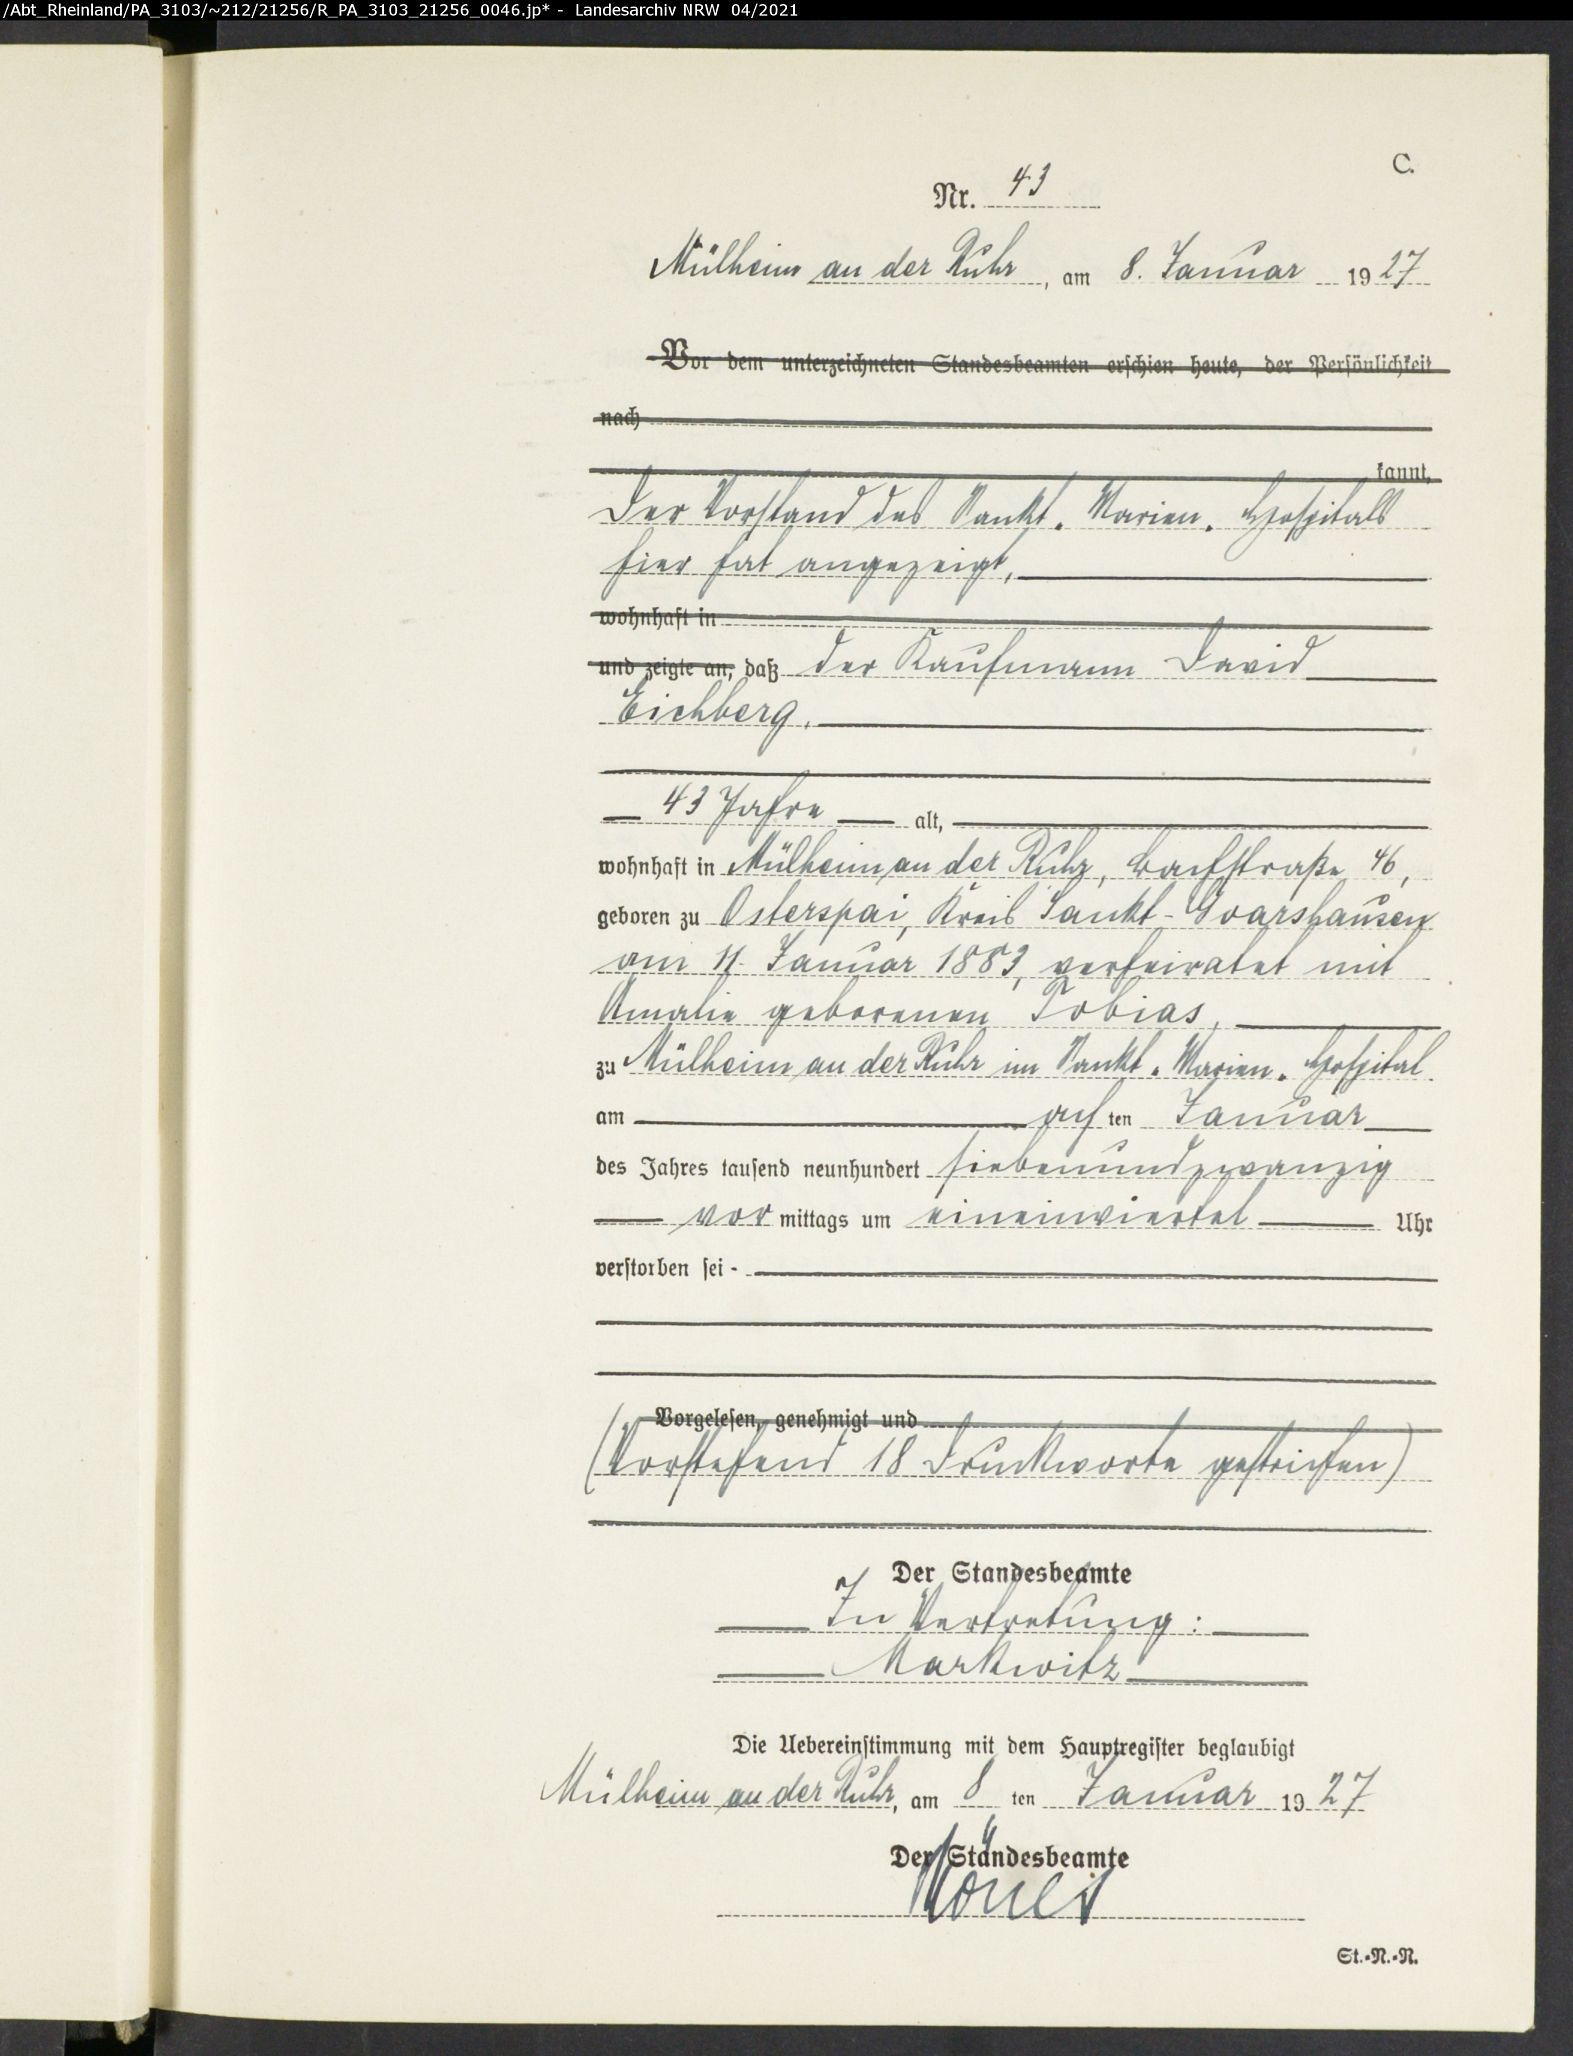 /Abt_Rheinland/PA_3103/~212/21256/R_PA_3103_21256_0046.jp* - Landesarchiv NRW 04/2021
C.
Nr. 43
Mülheim an der Ruhr, am 8. Januar 1927
Vor dem unterzeichneten Standesbeamten erschien heute, der Persönlichkeit
nach
kannt,
Der Vorstand des Sankt. Marien. Hospitals
hier hat angezeigt,
wohnhaft in
und zeigte an, daß der Kaufmann David
Eichberg,
43 Jahre alt,
wohnhaft in Mülheim an der Ruhr, Bachstraße 46,
geboren zu Osterspai, Kreis Sankt-Goarshausen
am 11. Januar 1883, verheiratet mit
Amalie geborenen Tobias,
zu Mülheim an der Ruhr im Sankt. Marien. Hospital
am achten Januar
des Jahres tausend neunhundert siebenundzwanzig
vormittags um eineinviertel Uhr
verstorben sei -
Vorgelesen, genehmigt und
(Vorstehend 18 Druckworte gestrichen)
Der Standesbeamte
In Vertretung:
Markwitz
Die Uebereinstimmung mit dem Hauptregister beglaubigt
Mülheim an der Ruhr, am 8 ten Januar 1927
Der Standesbeamte
St.-N.-N.